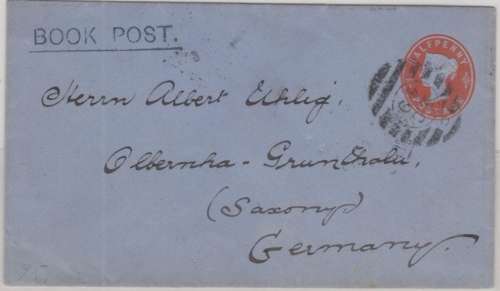 BOOK POST.
HALFPENNY
Herrn Albert Uhlig.
Olbernha - Grunthale.
(Saxony)
Germany.